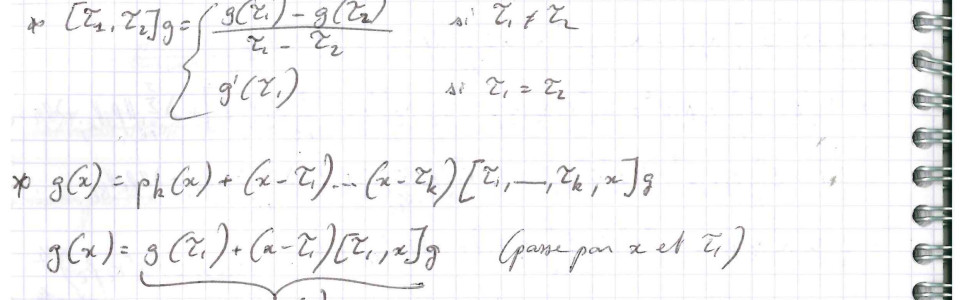 * [τ₁, τ₂]g = { (g(τ₁) - g(τ₂)) / (τ₁ - τ₂) si τ₁ ≠ τ₂
g'(τ₁) si τ₁ = τ₂
* g(x) = pk(x) + (x - τ₁)...(x - τk)[τ₁, —, τk, x]g
g(x) = g(τ₁) + (x - τ₁)[τ₁, x]g (passe par x et τ₁)